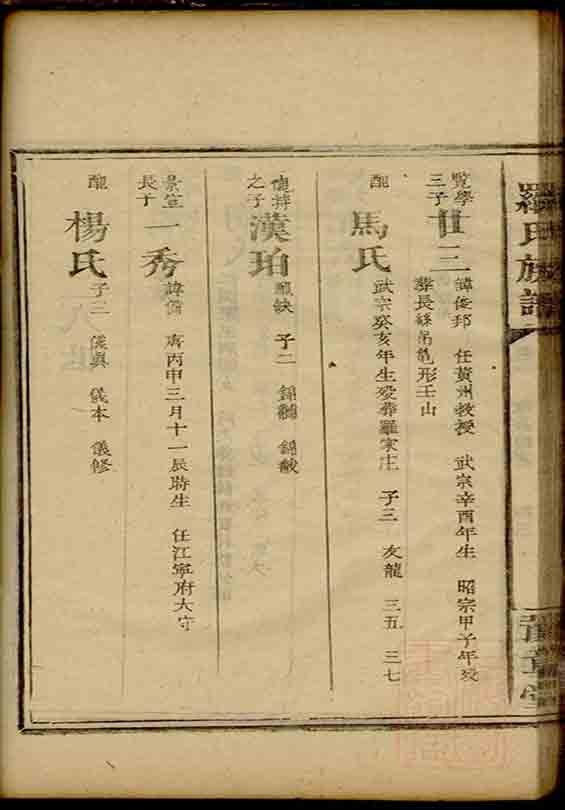 羅氏族譜
豫章堂
覽學
三子
廿三 諱俊邦 任黃州教授 武宗辛酉年生 昭宗甲子年歿
葬長 形壬山
配 馬氏 武宗癸亥年生歿葬羅家庄 子三 友龍 三五 三七
之子 漢珀 缺 子二 錦 錦
長子 一秀 諱 唐丙申三月十一辰時生 任江寧府太守
配 楊氏 子三 儀典 儀本 儀修